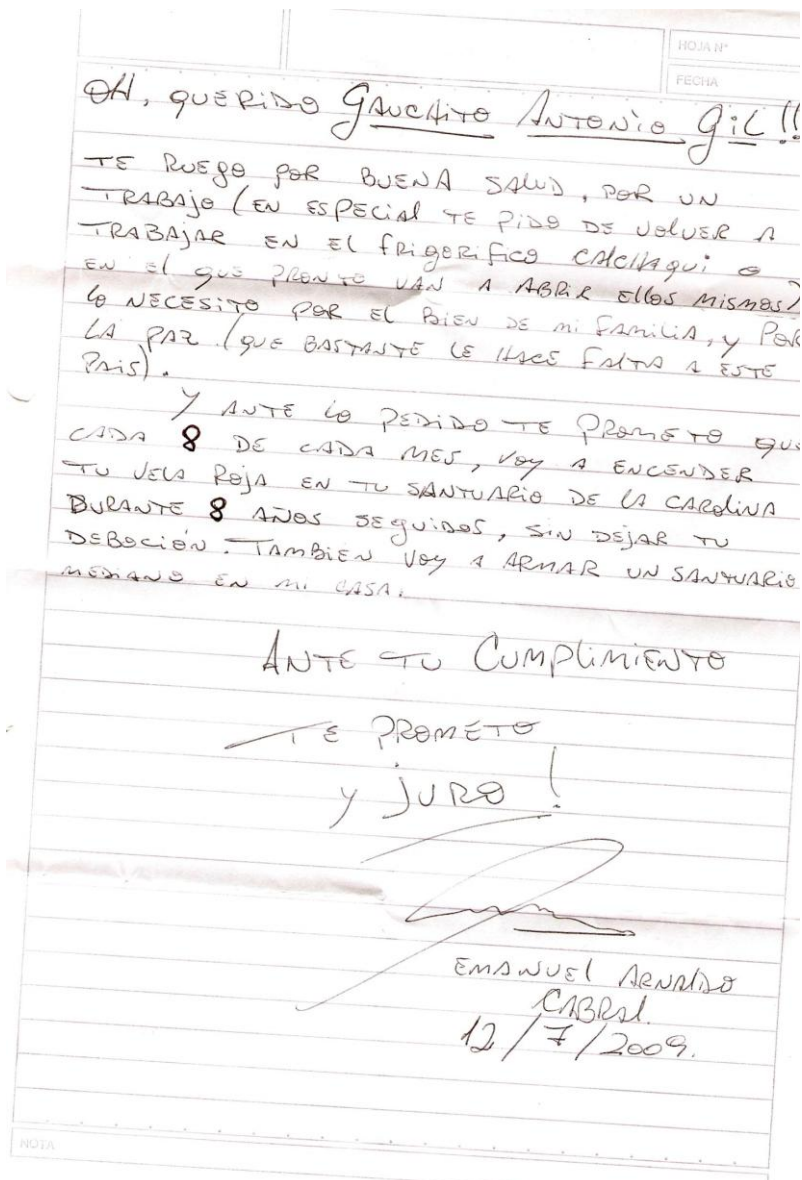 HOJA Nº
FECHA
OH, QUERIDO GAUCHITO ANTONIO GIL!!
TE RUEGO POR BUENA SALUD, POR UN
TRABAJO (EN ESPECIAL TE PIDO DE VOLVER A
TRABAJAR EN EL FRIGORIFICO CALCHAQUI O
EN EL QUE PRONTO VAN A ABRIR ELLOS MISMOS)
LO NECESITO POR EL BIEN DE MI FAMILIA, Y POR
LA PAZ (QUE BASTANTE LE HACE FALTA A ESTE
PAIS).
Y ANTE LO PEDIDO TE PROMETO QUE
CADA 8 DE CADA MES, VOY A ENCENDER
TU VELA ROJA EN TU SANTUARIO DE LA CAROLINA
DURANTE 8 AÑOS SEGUIDOS, SIN DEJAR TU
DEBOCIÓN. TAMBIEN VOY A ARMAR UN SANTUARIO
MEDIANO EN MI CASA.
ANTE TU CUMPLIMIENTO
TE PROMETO
Y JURO!
EMANUEL ARNALDO
CABRAL.
12/7/2009.
NOTA